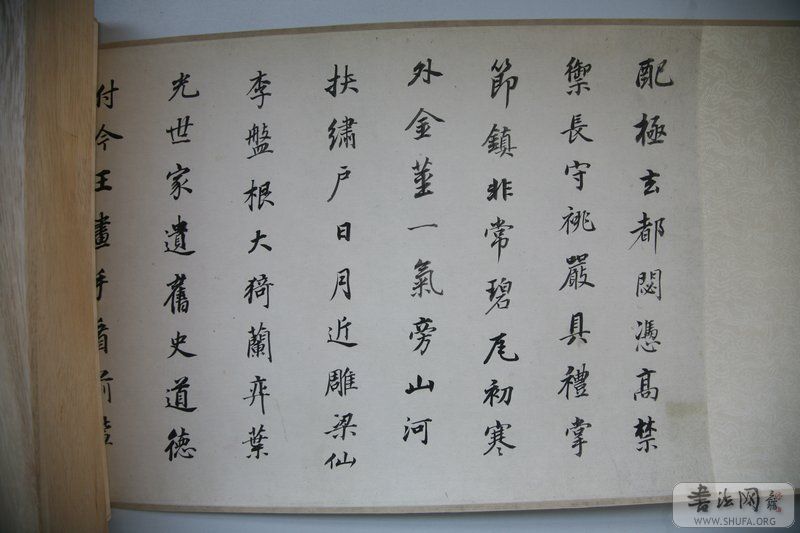 配極玄都閟憑高禁
禦長守祧嚴具禮掌
節鎮非常碧尾初寒
外金莖一氣旁山河
扶繡戶日月近雕梁仙
李盤根大猗蘭弈葉
光世家遺舊史道德
付今王畫手看前
书法网
WWW.SHUFA.ORG